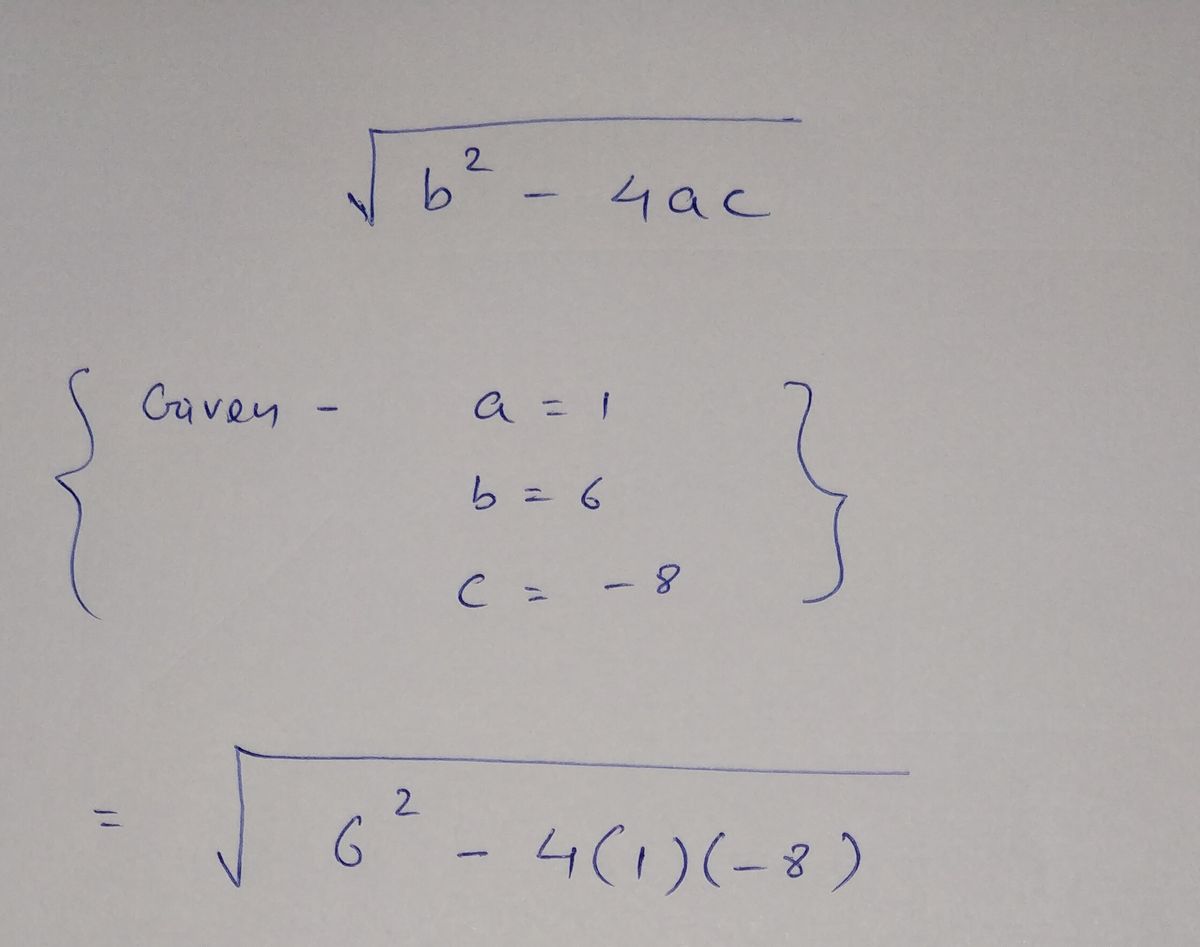 √(b² - 4ac)
{ Given - a = 1 }
b = 6
c = - 8
= √(6² - 4(1)(-8))